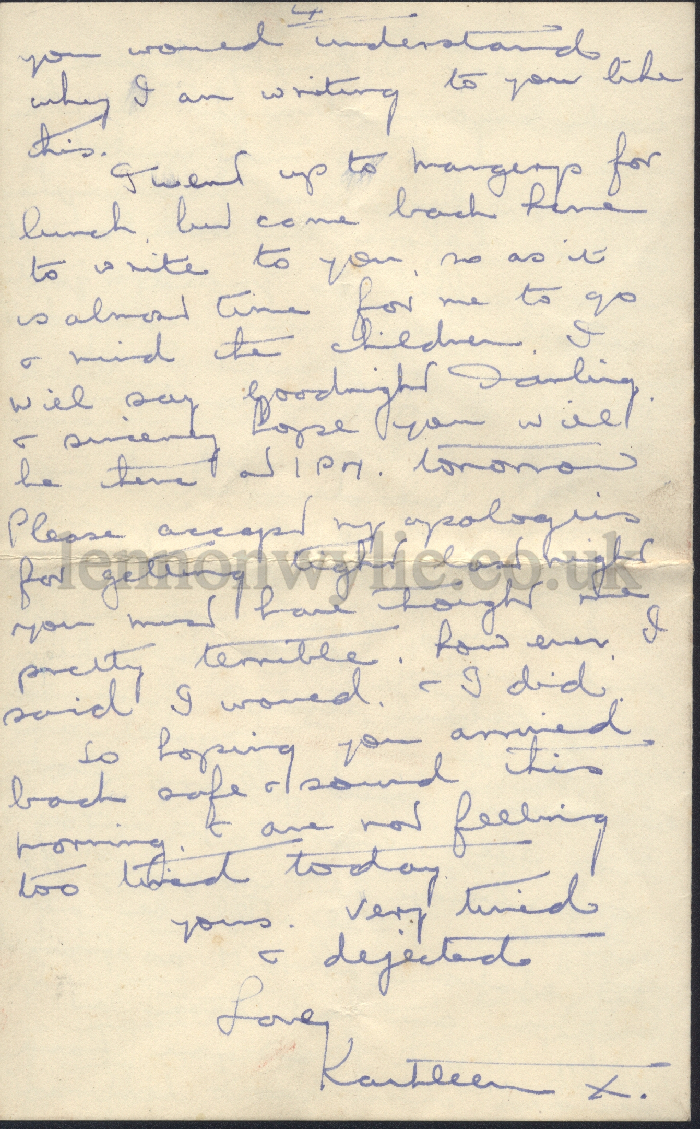 4
you would understand
why I am writing to you like
this.
I went up to Margerys for
lunch, but came back here
to write to you, so as it
is almost time for me to go
& mind the children. I
will say goodnight Darling.
& sincerely hope you will
be there at 1 PM. tomorrow
Please accept my apologies
for getting tight last night
you must have thought me
pretty terrible. however, I
said I would. & I did.
So hoping you arrived
back safe & sound this
morning, & are not feeling
too tired today
yours. very tired
& dejected
Love,
Kathleen X.
lennonwylie.co.uk